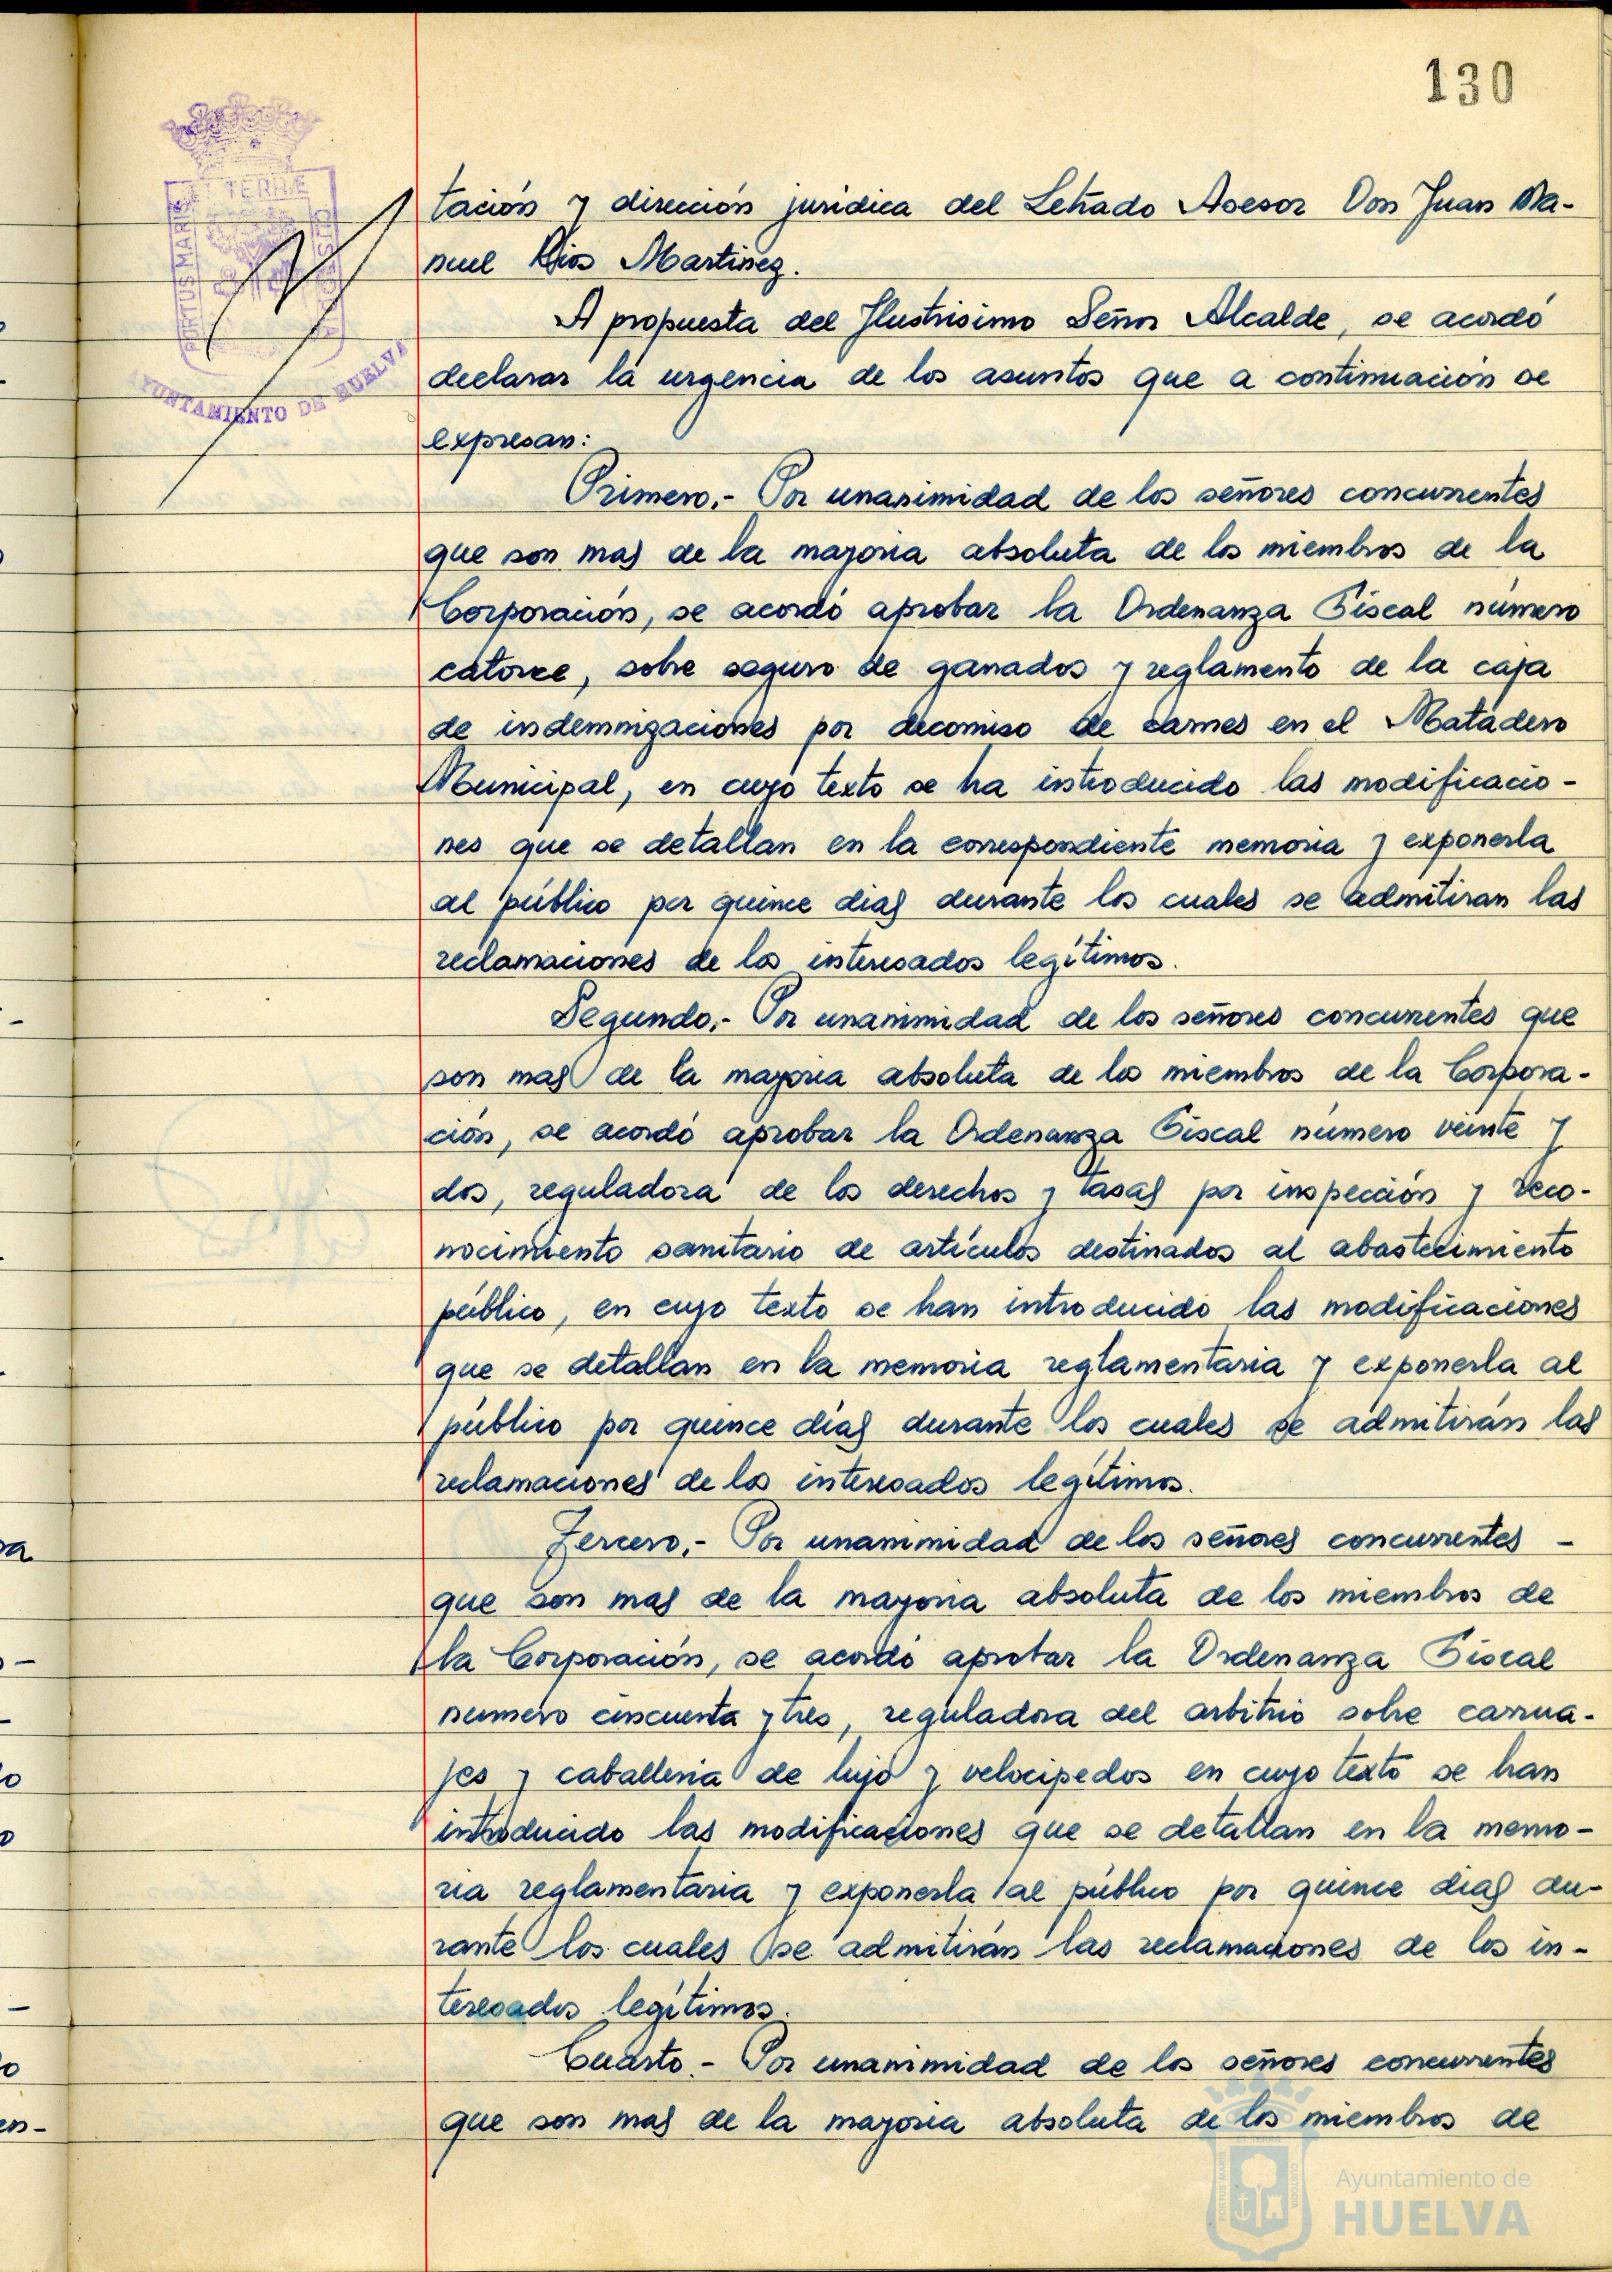 130
TERRAE
PORTUS MARIS
CUSTODIA
AYUNTAMIENTO DE HUELVA
tación y dirección jurídica del Letrado Asesor Don Juan Ma-
nuel Rios Martinez.
A propuesta del Ilustrisimo Señor Alcalde, se acordó
declarar la urgencia de los asuntos que a continuación se
expresan:
Primero,- Por unanimidad de los señores concurrentes
que son mas de la mayoria absoluta de los miembros de la
Corporación, se acordó aprobar la Ordenanza Fiscal número
catorce, sobre seguro de ganados y reglamento de la caja
de indemnizaciones por decomiso de carnes en el Matadero
Municipal, en cuyo texto se ha introducido las modificacio-
nes que se detallan en la correspondiente memoria y exponerla
al público por quince dias durante los cuales se admitiran las
reclamaciones de los interesados legítimos.
Segundo,- Por unanimidad de los señores concurrentes que
son mas de la mayoria absoluta de los miembros de la Corpora-
ción, se acordó aprobar la Ordenanza Fiscal número veinte y
dos, reguladora de los derechos y tasas por inspección y reco-
nocimiento sanitario de artículos destinados al abastecimiento
público, en cuyo texto se han introducido las modificaciones
que se detallan en la memoria reglamentaria y exponerla al
público por quince días durante los cuales se admitirán las
reclamaciones de los interesados legítimos.
Tercero,- Por unanimidad de los señores concurrentes -
que son mas de la mayoria absoluta de los miembros de
la Corporación, se acordó aprobar la Ordenanza Fiscal
numero cincuenta y tres, reguladora del arbitrio sobre carrua-
jes y caballeria de lujo y velocipedos en cuyo texto se han
introducido las modificaciones que se detallan en la memo-
ria reglamentaria y exponerla al público por quince dias du-
rante los cuales se admitirán las reclamaciones de los in-
teresados legítimos.
Cuarto.- Por unanimidad de los señores concurrentes
que son mas de la mayoria absoluta de los miembros de
Ayuntamiento de
HUELVA